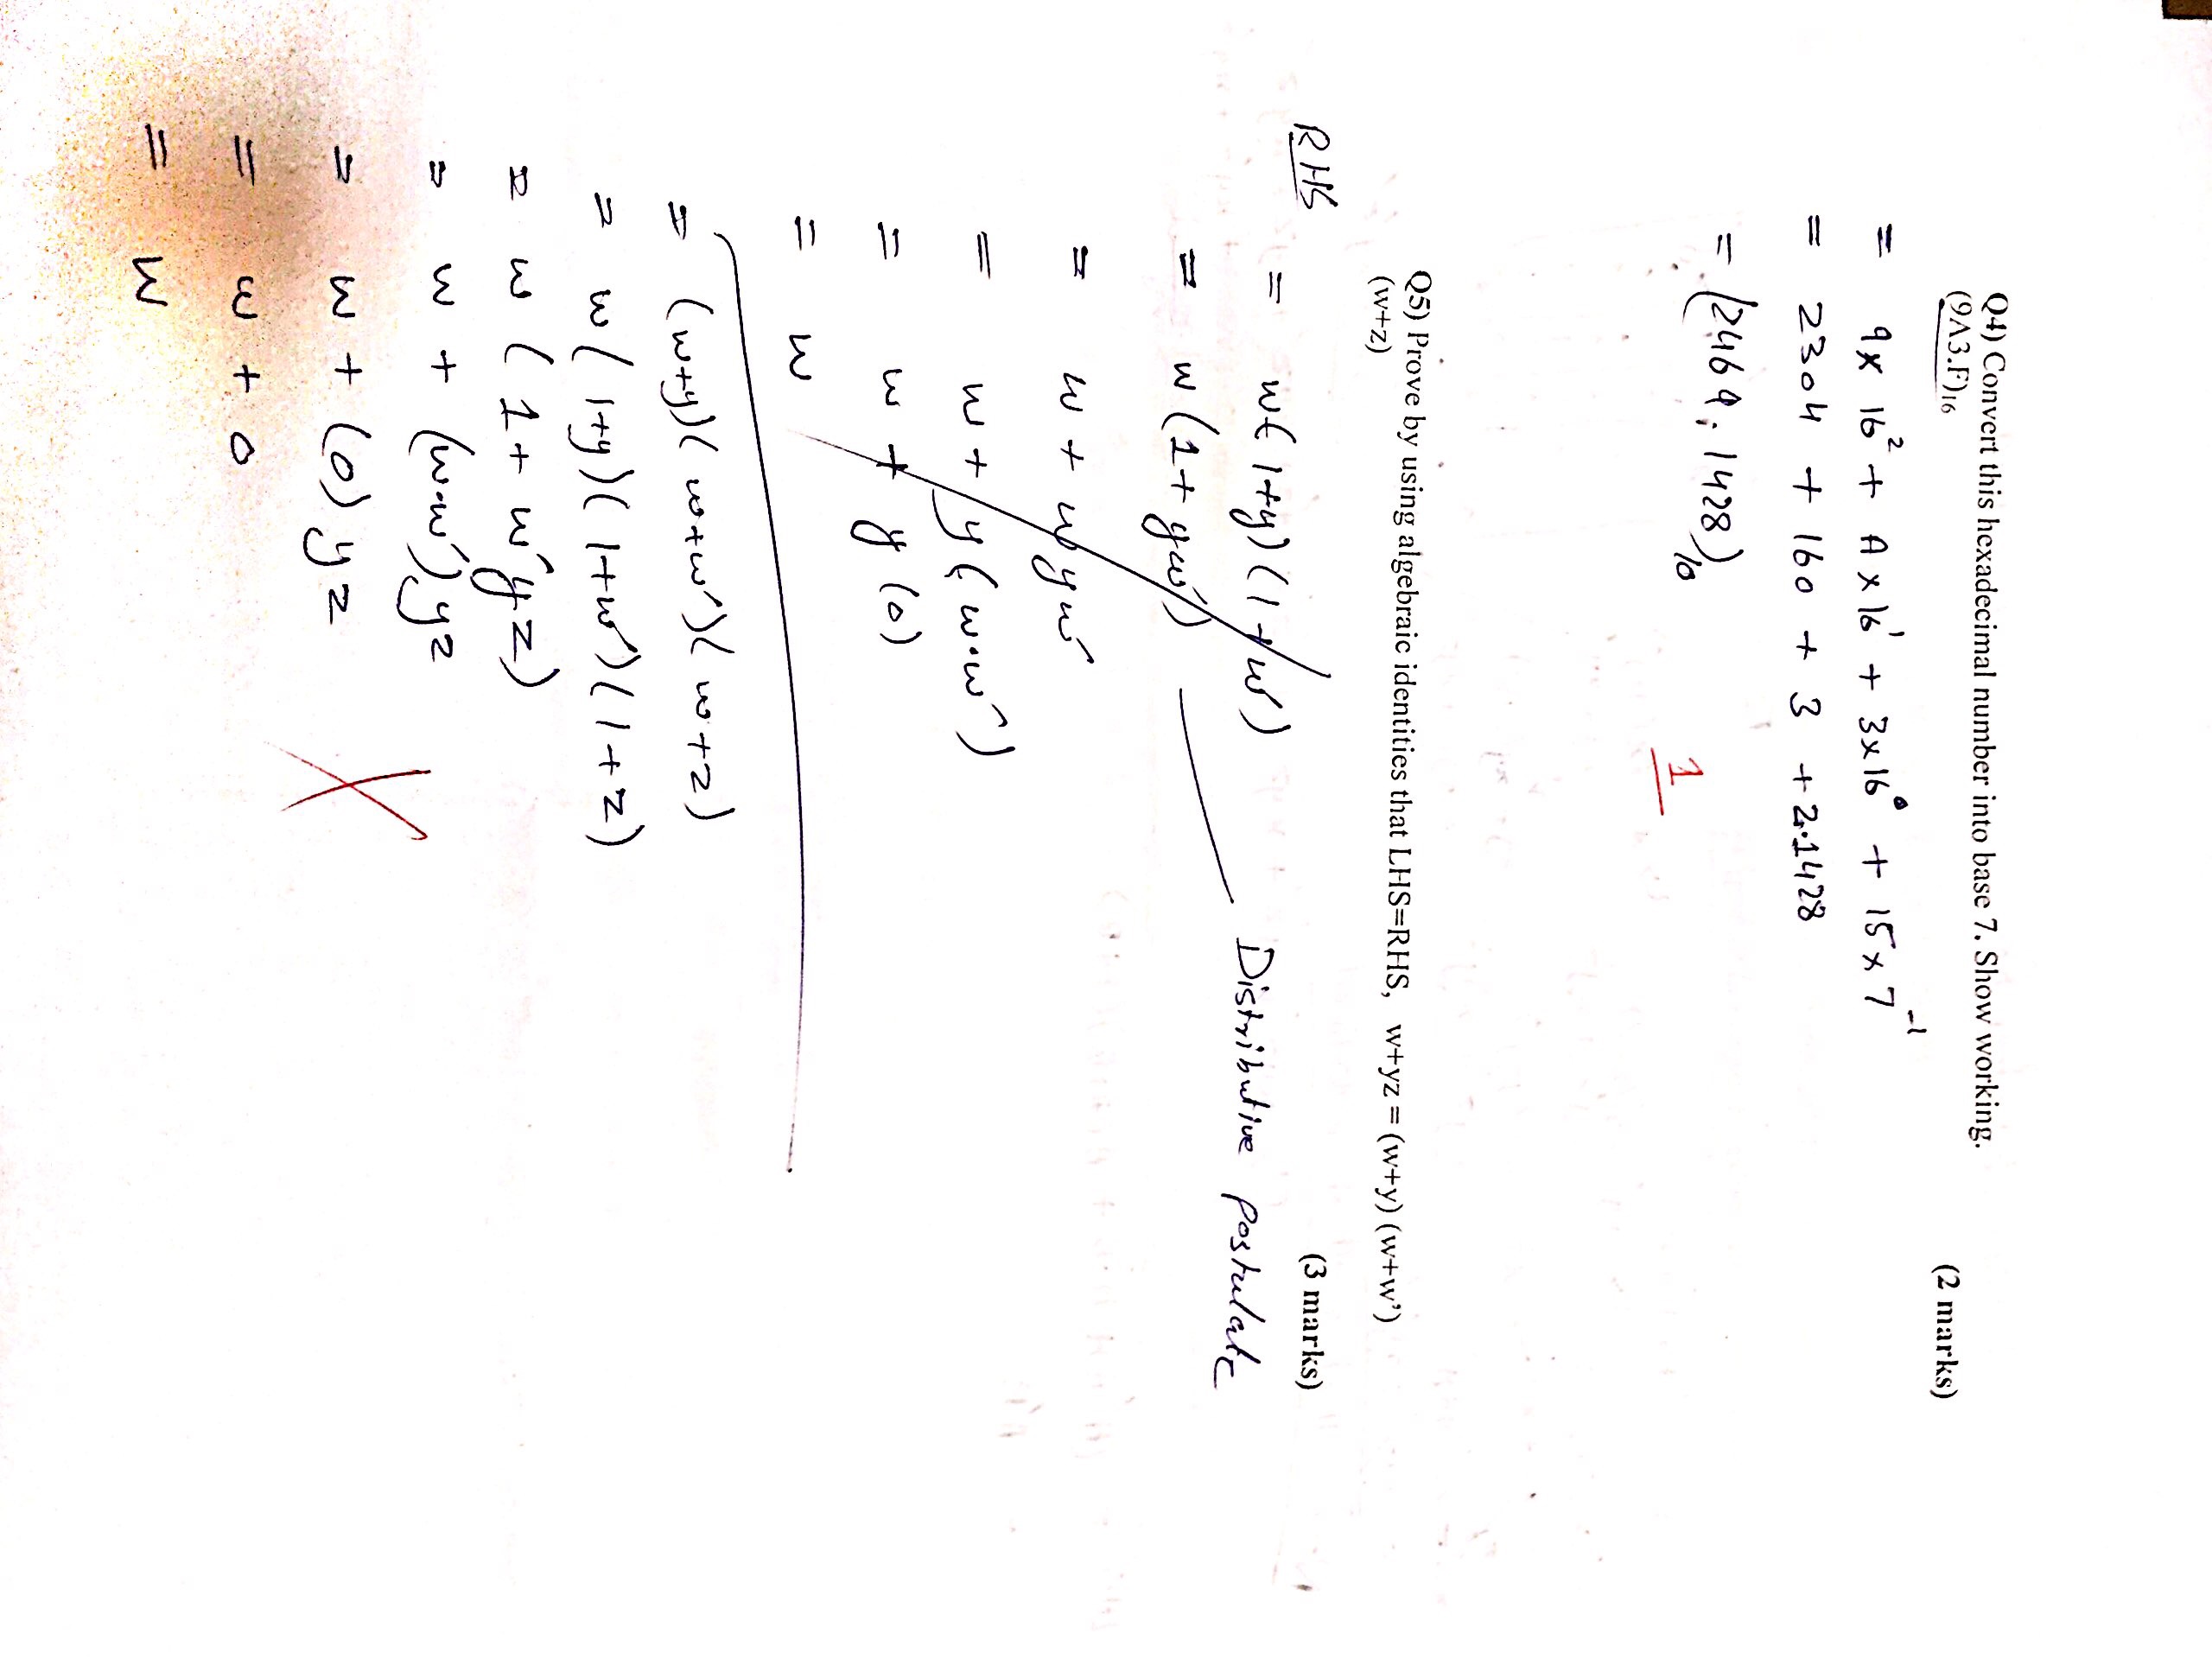 Q4) Convert this hexadecimal number into base 7. Show working.
(2 marks)
(9A3.F)₁₆
= 9 x 16² + A x 16¹ + 3 x 16⁰ + 15 x 7⁻¹
= 2304 + 160 + 3 + 2.1428
= (2469.1428)₁₀
1
Q5) Prove by using algebraic identities that LHS=RHS, w+yz = (w+y) (w+w')
(w+z)
(3 marks)
RHS
= w(1+y)(1+w')
= w(1+yw') Distributive Postulate
= w + wyw'
= w + y(w·w')
= w + y(0)
= w
= (w+y)(w+w')(w+z)
= w(1+y)(1+w')(1+z)
= w(1+w'yz)
= w + (w·w')yz
= w + (0)yz
= w + 0
= w